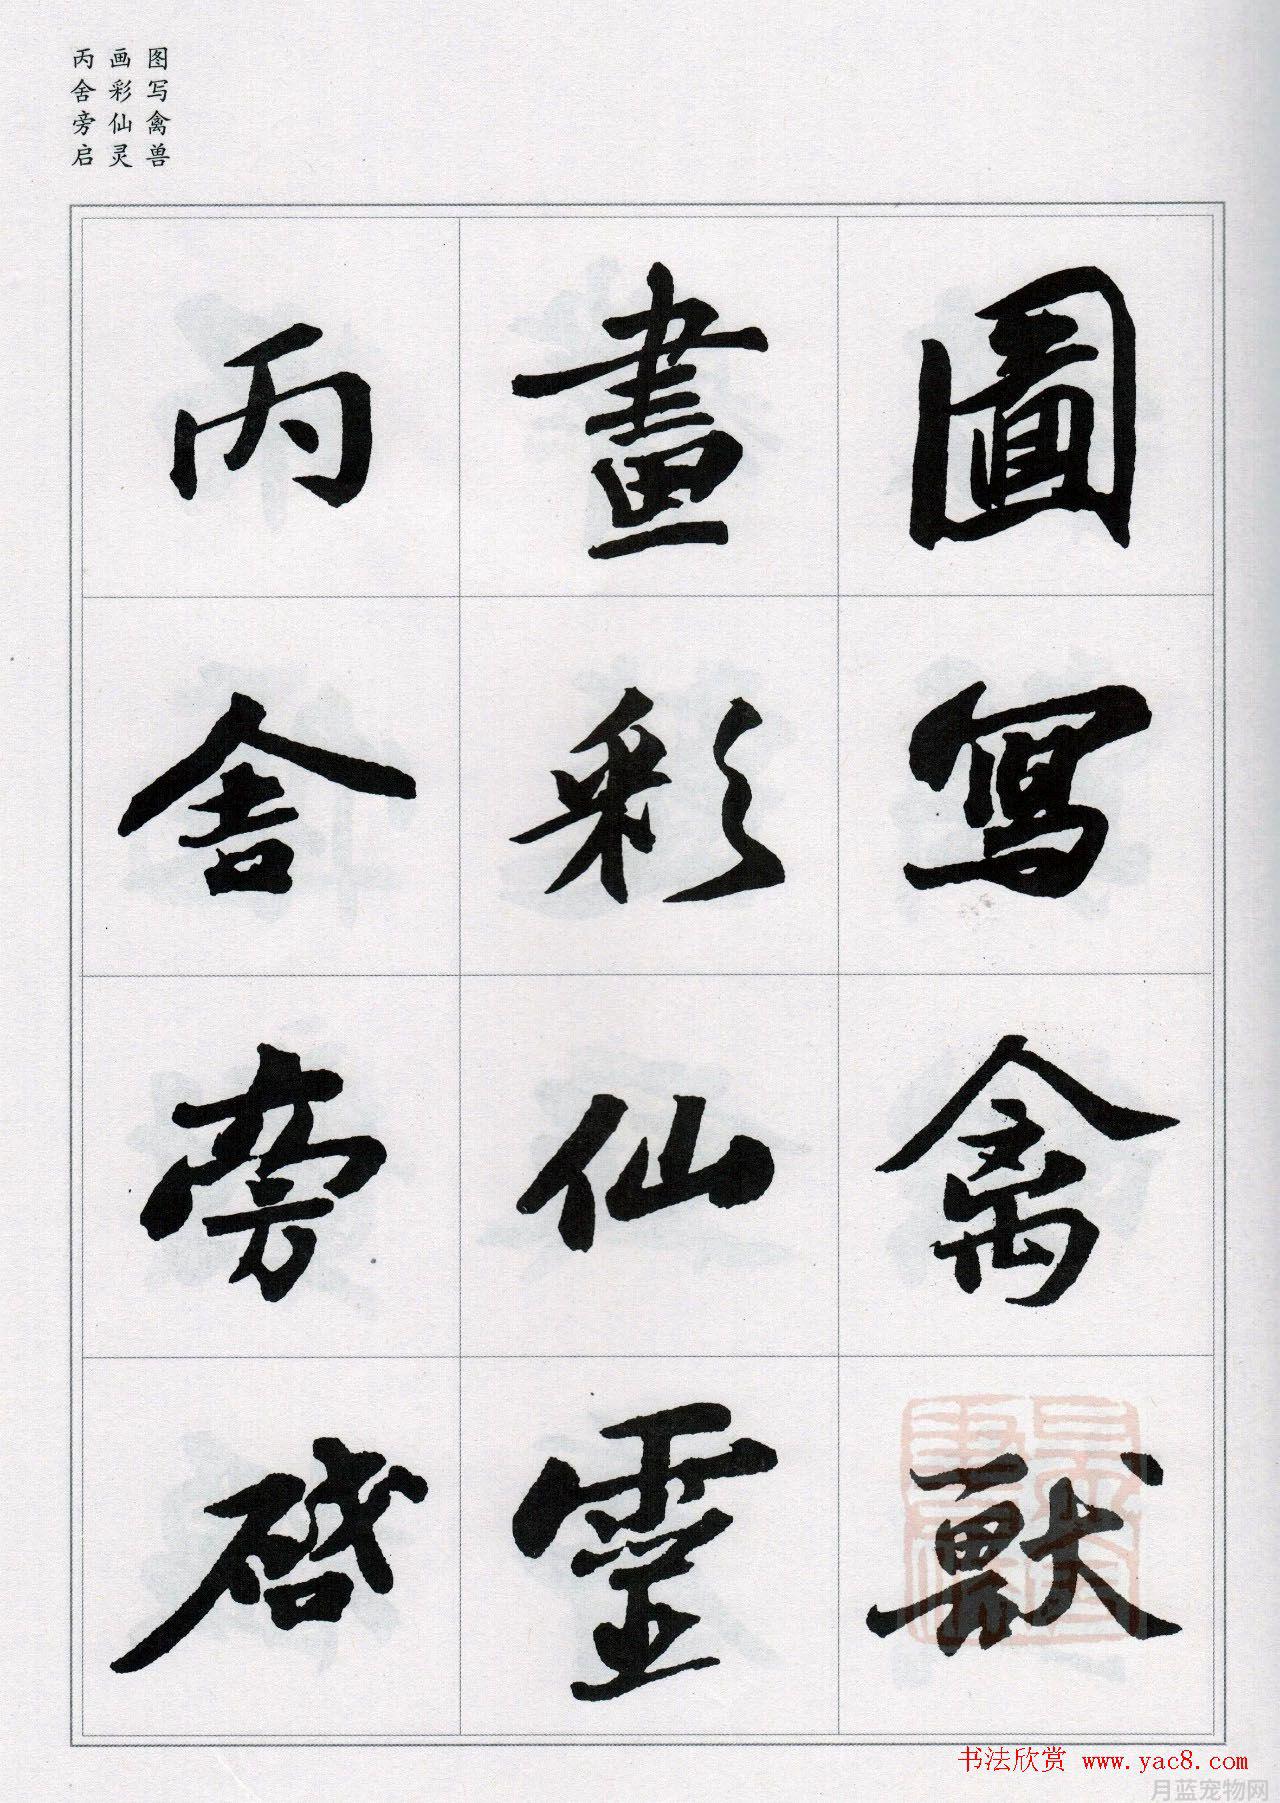 图写禽兽
画彩仙灵
丙舍旁启
圖寫禽獸
畫彩仙靈
丙舍旁啓
书法欣赏 www.yac8.com
月蓝宠物网